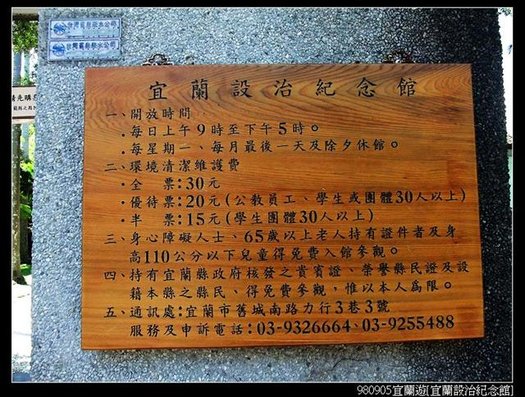 台灣省自來水公司
台灣省自來水公司
宜蘭設治紀念館
一、開放時間
•每日上午9時至下午5時。
•每星期一、每月最後一天及除夕休館。
二、環境清潔維護費
•全　票：30元
•優待票：20元(公教員工、學生或團體30人以上)
•半　票：15元(學生團體30人以上)
三、身心障礙人士、65歲以上老人持有證件者及身
高110公分以下兒童得免費入館參觀。
四、持有宜蘭縣政府核發之貴賓證、榮譽縣民證及設
籍本縣之縣民、得免費參觀，惟以本人為限。
五、通訊處：宜蘭市舊城南路力行3巷3號
服務及申訴電話：03-9326664、03-9255488
980905宜蘭遊[宜蘭設治紀念館]